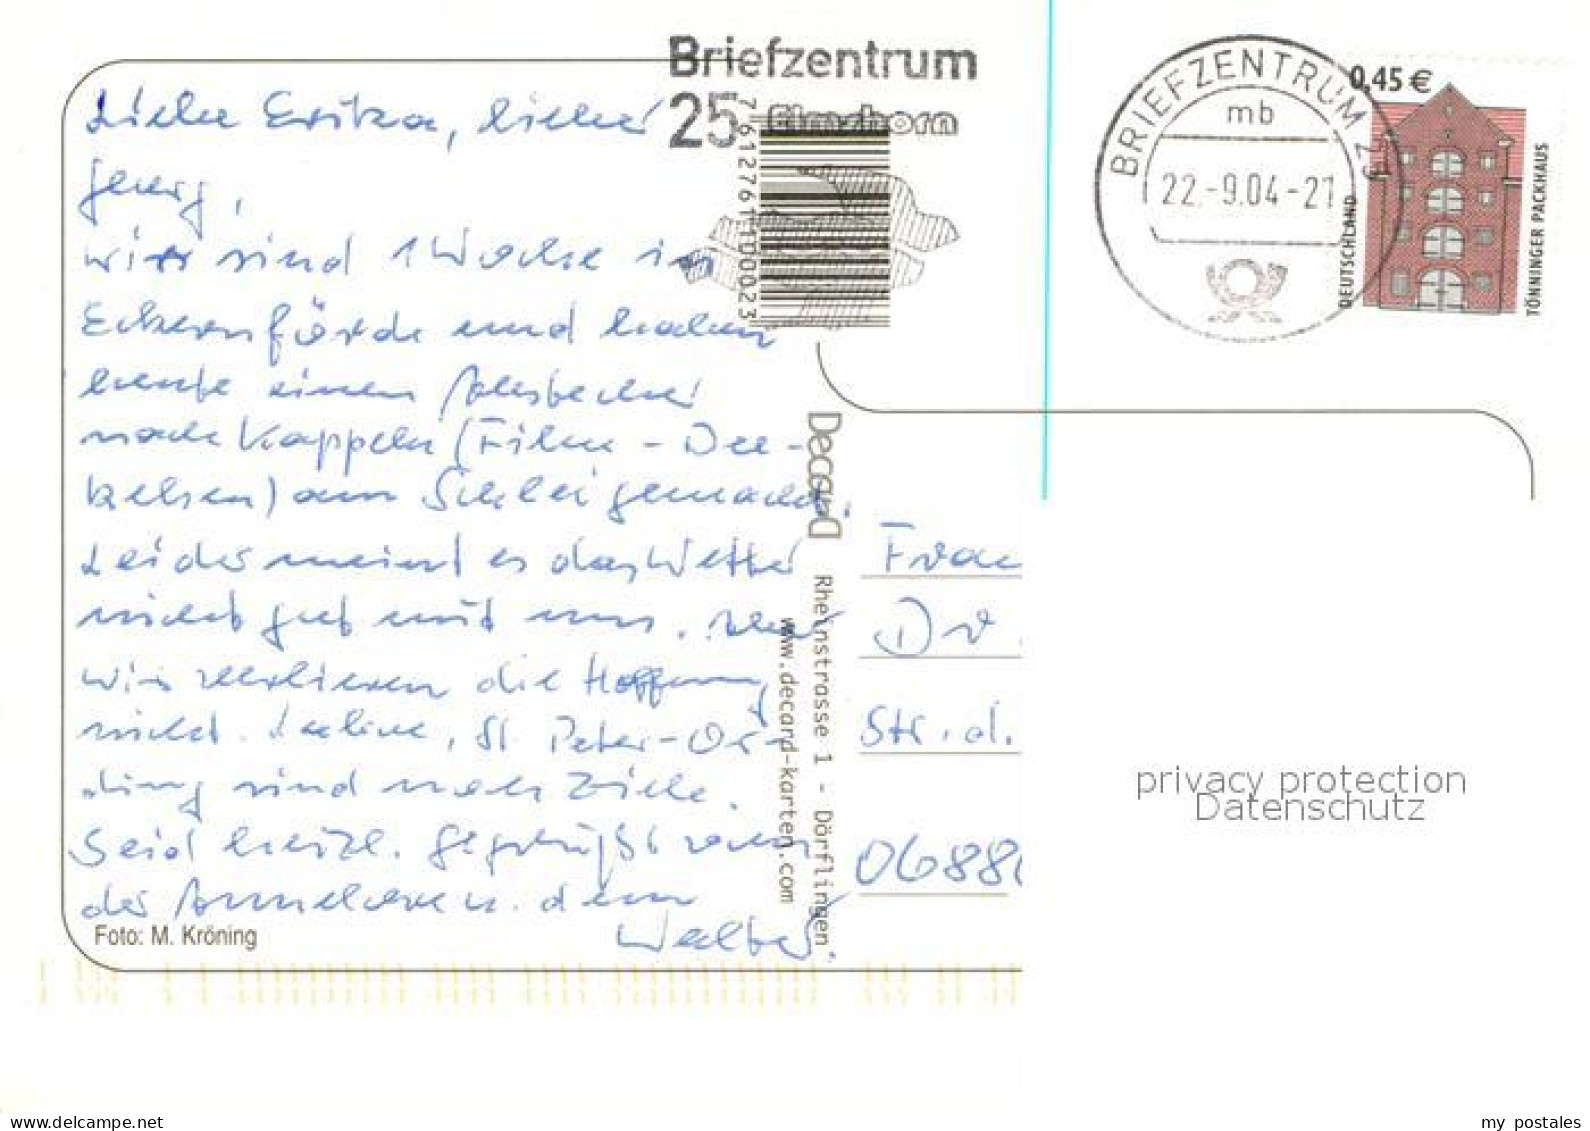 Briefzentrum
25 Elmshorn
BRIEFZENTRUM 25
mb
22.-9.04-21
0,45 €
DEUTSCHLAND
TÖNNINGER PACKHAUS
7 612761 100023
Liebe Erika, lieber
Georg,
wir sind 1 Woche in
Eckernförde und haben
heute einen Abstecher
nach Kappeln (Film - Dee-
kelsen) am Schlei gemacht.
Leider meint es das Wetter
nicht gut mit uns. Aber
wir verlieren die Hoffnung
nicht. , St. Peter-Or-
ding sind noch Ziele.
Seid herzl. gegrüßt von
der Annelore u. dem
Walter.
Foto: M. Kröning
DecarD
Rheinstrasse 1 - Dörflingen
www.decard-karten.com
Frau
Dr.
Str. d.
0688
privacy protection
Datenschutz
my postales